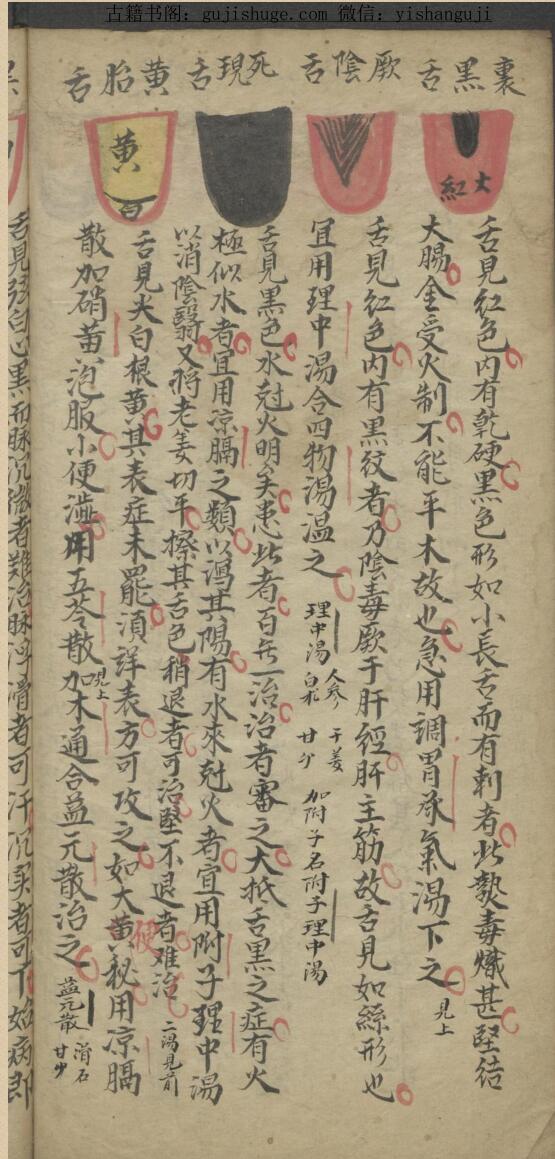 古籍书阁：gujishuge.com 微信：yishanguji
裏黑舌
厥陰舌
死現舌
黄胎舌
大紅
黄
白
舌見紅色内有乾硬黑色形如小長舌而有刺者此熱毒熾甚堅結
大腸金受火制不能平木故也急用調胃承氣湯下之 見上
舌見紅色内有黑紋者乃陰毒厥于肝經肝主筋故舌見如絲形也
宜用理中湯合四物湯温之 理中湯 人參 白朮 干姜 甘艸 加附子名附子理中湯
舌見黑色水尅火明矣患此者百無一治治者審之大抵舌黑之症有火
極似水者宜用凉膈之類以瀉其陽有水來尅火者宜用附子理中湯
以消陰翳又將老姜切平擦其舌色稍退者可治堅不退者难治 二湯見前
舌見尖白根黄其表症未罷須詳表方可攻之如大黄秘用凉膈
硬
散加硝黄泡服小便澁用五苓散加木通合益元散治之 見上 益元散 滑石 甘艸
舌見弦白心黑而脉沉微者難治脉浮滑者可汗沉实者可下始病即